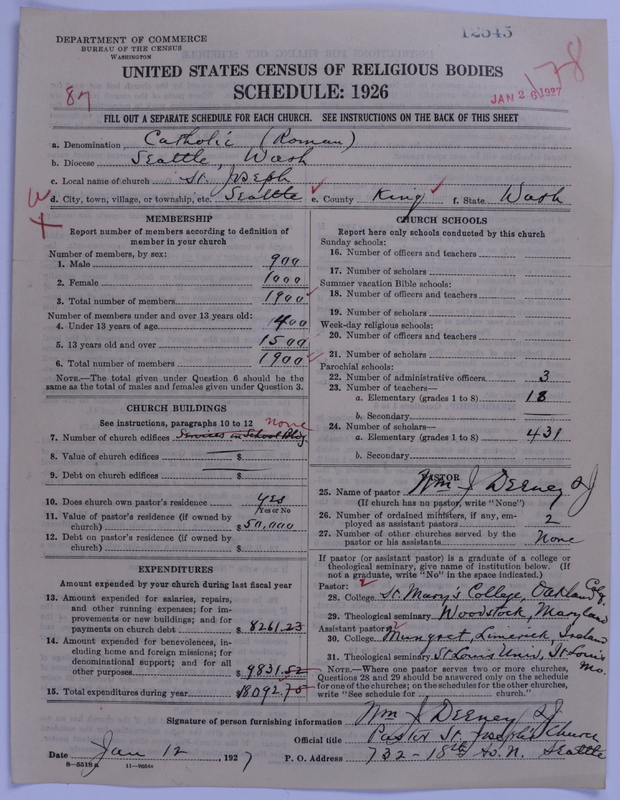 12345
DEPARTMENT OF COMMERCE
BUREAU OF THE CENSUS
WASHINGTON
UNITED STATES CENSUS OF RELIGIOUS BODIES
178
87
SCHEDULE: 1926
JAN 26 1927
FILL OUT A SEPARATE SCHEDULE FOR EACH CHURCH. SEE INSTRUCTIONS ON THE BACK OF THIS SHEET
a. Denomination Catholic (Roman)
b. Diocese Seattle, Wash
c. Local name of church St. Joseph
d. City, town, village, or township, etc. Seattle e. County King f. State Wash
MEMBERSHIP
Report number of members according to definition of
member in your church
Number of members, by sex:
1. Male 900
2. Female 1000
3. Total number of members 1900
Number of members under and over 13 years old:
4. Under 13 years of age 400
5. 13 years old and over 1500
6. Total number of members 1900
NOTE.—The total given under Question 6 should be the
same as the total of males and females given under Question 3.
CHURCH BUILDINGS
See instructions, paragraphs 10 to 12 none
7. Number of church edifices Services in School Bldg
8. Value of church edifices $
9. Debt on church edifices $
10. Does church own pastor's residence yes
Yes or No
11. Value of pastor's residence (if owned by
church) $50,000
12. Debt on pastor's residence (if owned by
church) $
EXPENDITURES
Amount expended by your church during last fiscal year
13. Amount expended for salaries, repairs,
and other running expenses; for im-
provements or new buildings; and for
payments on church debt $ 8261.23
14. Amount expended for benevolences, in-
cluding home and foreign missions; for
denominational support; and for all
other purposes $9831.52
15. Total expenditures during year $18092.75
CHURCH SCHOOLS
Report here only schools conducted by this church
Sunday schools:
16. Number of officers and teachers
17. Number of scholars
Summer vacation Bible schools:
18. Number of officers and teachers
19. Number of scholars
Week-day religious schools:
20. Number of officers and teachers
21. Number of scholars
Parochial schools:
22. Number of administrative officers 3
23. Number of teachers—
a. Elementary (grades 1 to 8) 18
b. Secondary
24. Number of scholars—
a. Elementary (grades 1 to 8) 431
b. Secondary
PASTOR
25. Name of pastor Wm J Deeney SJ
(If church has no pastor, write "None")
26. Number of ordained ministers, if any, em-
ployed as assistant pastors 2
27. Number of other churches served by the
pastor or his assistants None
If pastor (or assistant pastor) is a graduate of a college or
theological seminary, give name of institution below. (If
not a graduate, write "No" in the space indicated.)
Pastor:
28. College St. Mary's College, Oakland Calif.
29. Theological seminary Woodstock, Maryland
Assistant pastor:
30. College Mungret, Limerick, Ireland
31. Theological seminary St Louis Univ, St Louis
Mo.
NOTE.—Where one pastor serves two or more churches,
Questions 28 and 29 should be answered only on the schedule
for one of the churches; on the schedules for the other churches,
write "See schedule for church."
Signature of person furnishing information Wm J Deeney SJ
Official title Pastor St. Joseph's Church
Date Jan 12, 1927 P. O. Address 732-18th Av. N. Seattle
8-5518a